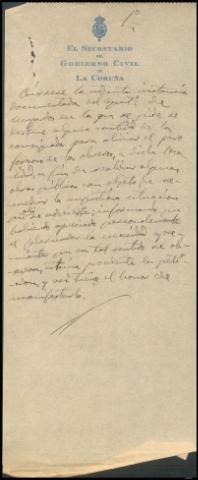 1º
EL SECRETARIO
DEL
GOBIERNO CIVIL
DE
LA CORUÑA
Cúrsese la adjunta instancia
documentada del Ayunt.º de
en la que se pide se
destine alguna cantidad de la
consignada para aliviar el paro
forzoso de los obreros, a dicha
con fin de realizar algunas
obras públicas con objeto de re-
mediar la angustiosa situación
informando que
habiendo apreciado personalmente
el gobernador la necesidad y
en tal sentido de
estima procedente la peti-
ción, y así tiene el honor de
manifestarlo.